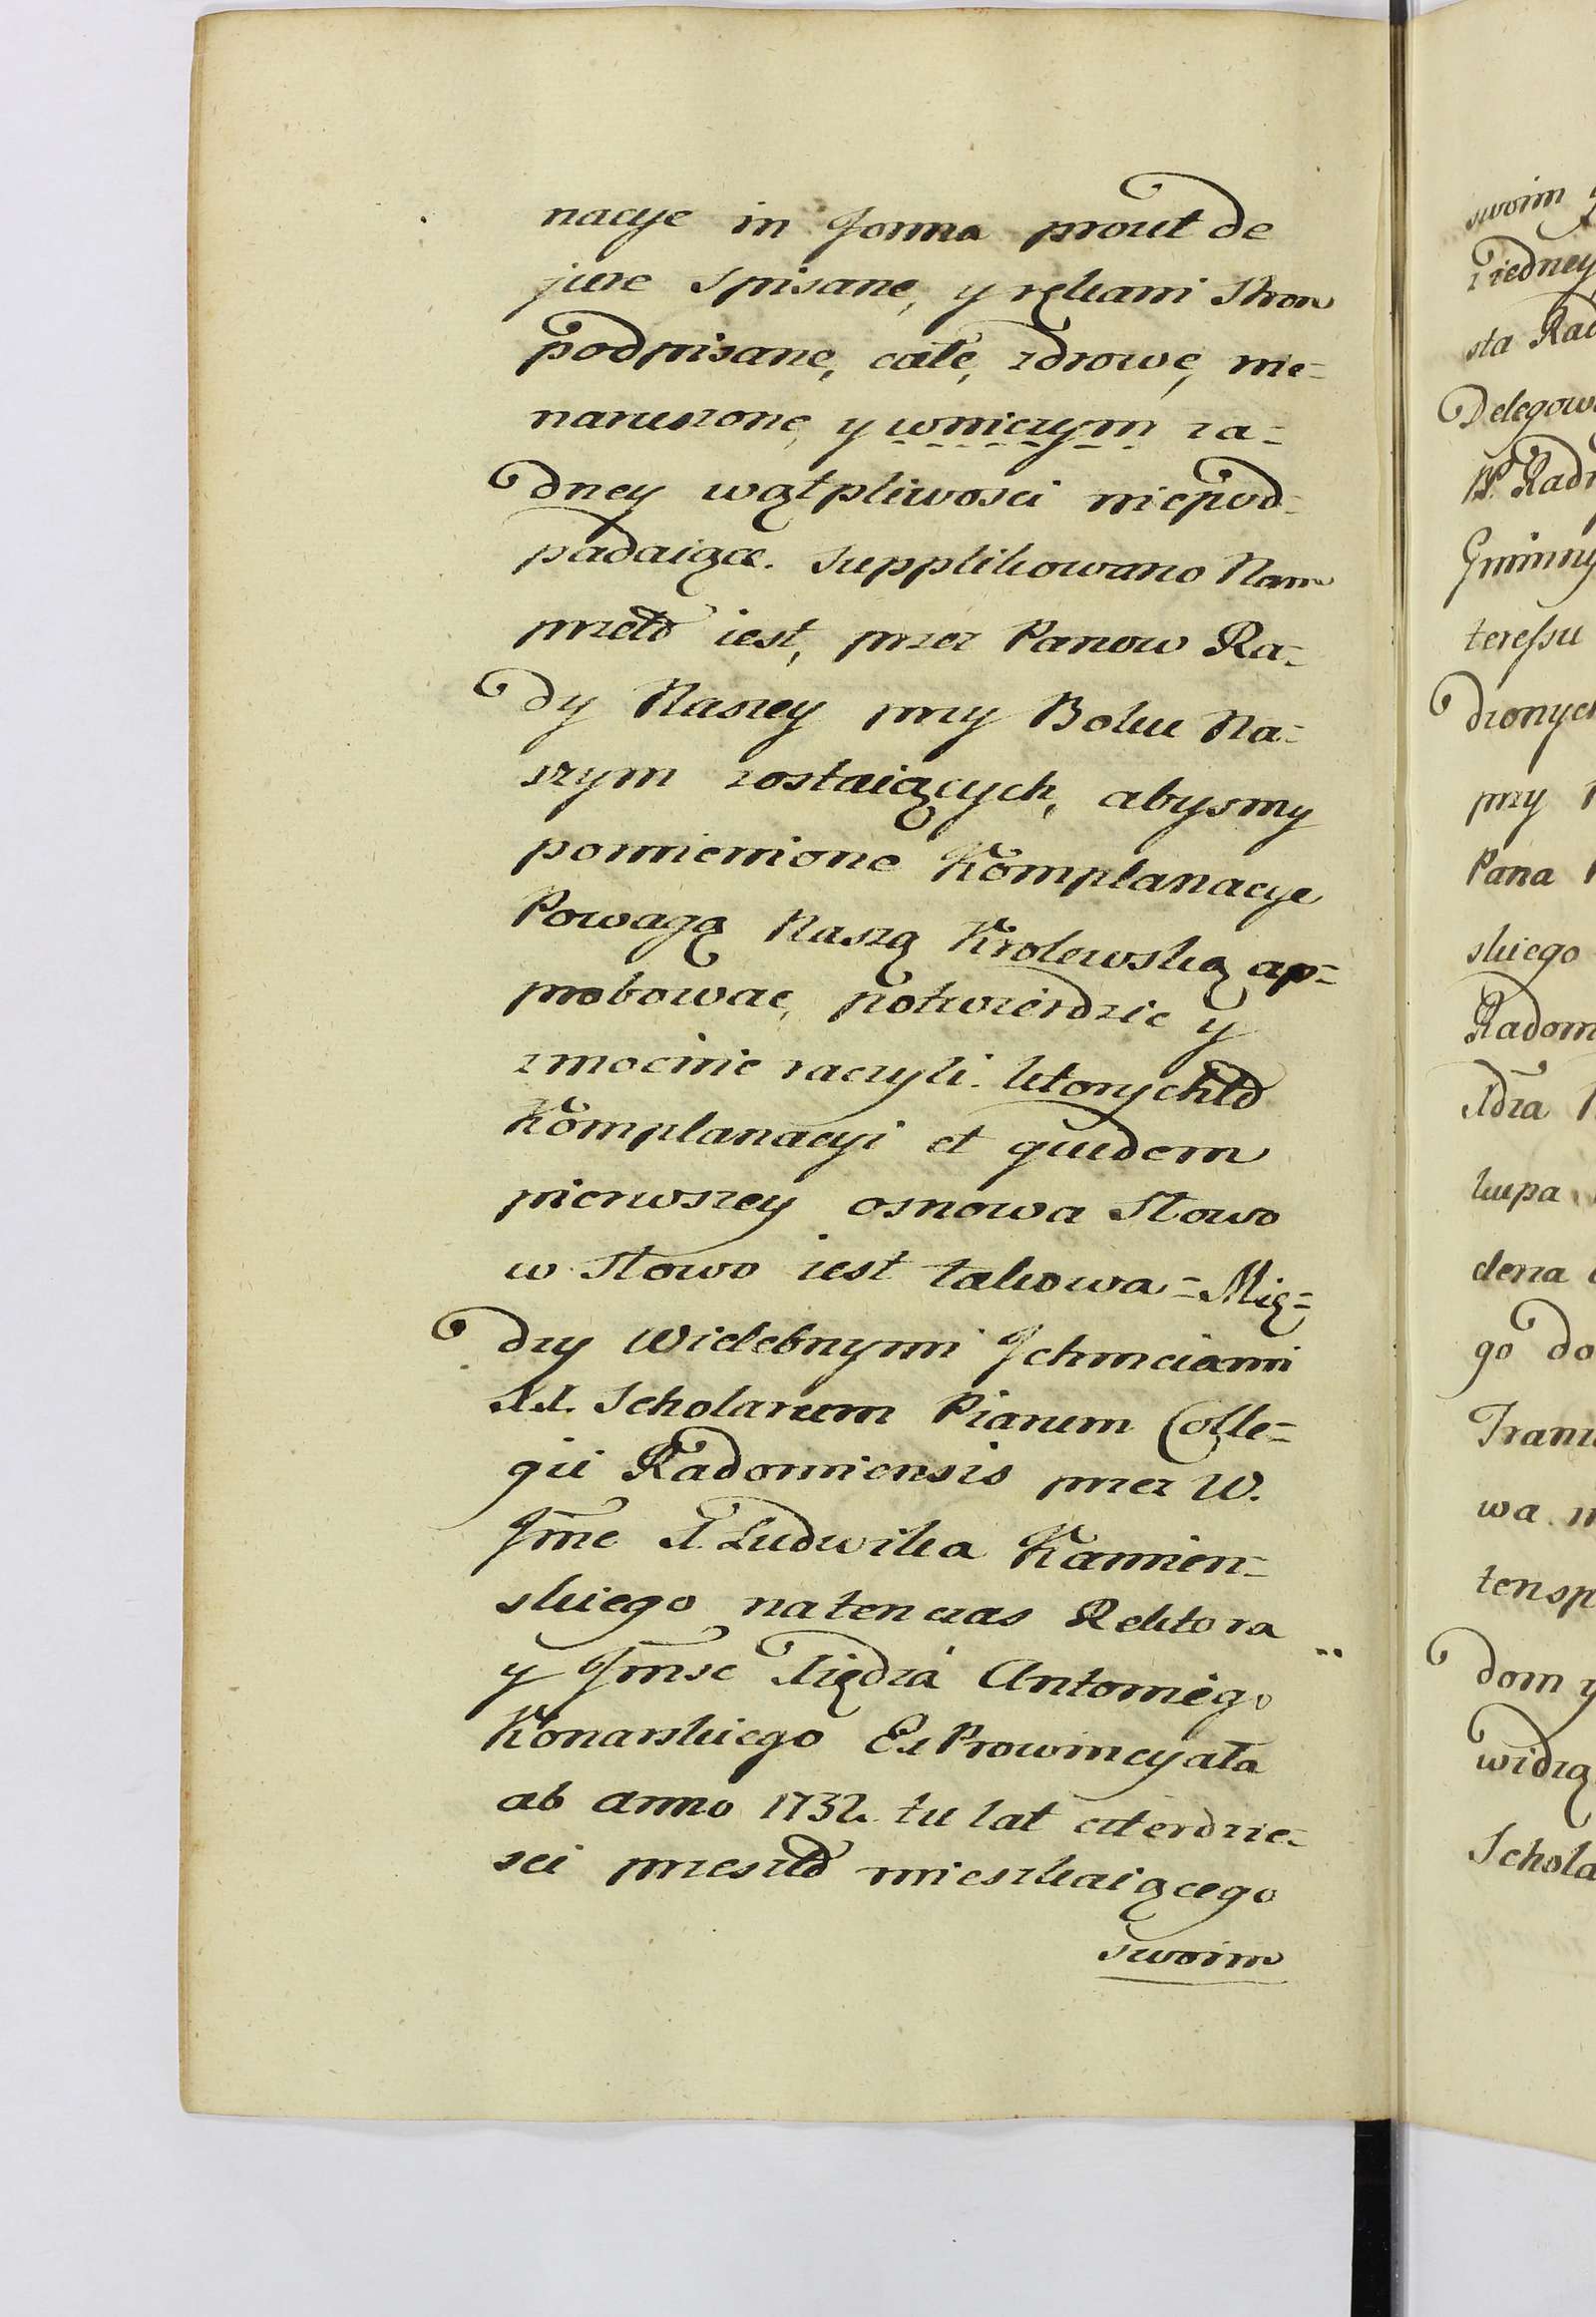 nacye in forma prout de
jure spisane, y rękami stron
podpisane, całe, zdrowe, nie=
naruszone, y wniczym za=
dney wątpliwosci niepod=
padaiące. Supplikowano Nam
przeto iest, przez Panow Ra=
dy Naszey przy Boku Na=
szym zostaiących, abysmy
pomienione Komplanacye
Powagą Naszą Krolewską ap=
probowac, potwierdzic y
zmocnic raczyli. ktorychto
Komplanacyi et quidem
pierwszey osnowa Słowo
w Słowo iest takowa = Mię=
dzy Wielebnymi Jchmciami
XX. Scholarum Piarum Colle=
gii Radomiensis przez W.
Jmc X. Ludwika Kamien=
skiego natenczas Rektora
y Jmsc Xiędza Antoniego
Konarskiego Ex Prowincyała
ab anno 1732. tu lat czterdzie=
sci przeszło mieszkaiącego
swoim
swoim
z iedney
sta Rad
Delegow
Radn
Gminny
teressu
dzonych
przy
Pana
skiego
Radom
Xdza
kupa
denza
go do
Franc
wa
tensp
dom y
widzą
Schola